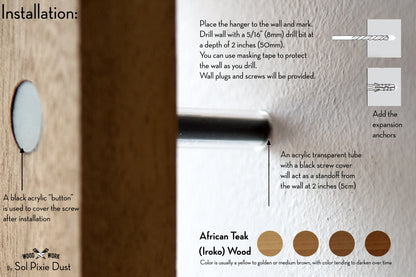 Installation:
Place the hanger to the wall and mark.
Drill wall with a 5/16" (8mm) drill bit at
a depth of 2 inches (50mm).
You can use masking tape to protect
the wall as you drill.
Wall plugs and screws will be provided.
Add the
expansion
anchors
An acrylic transparent tube
with a black screw cover
will act as a standoff from
the wall at 2 inches (5cm)
A black acrylic "button"
is used to cover the screw
after installation
African Teak
(Iroko) Wood
Color is usually a yellow to golden or medium brown, with color tending to darken over time
WOOD WORK
By Sol Pixie Dust